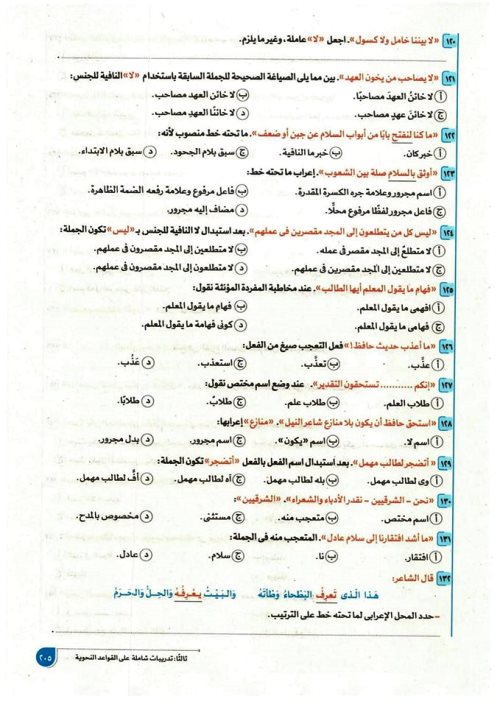 ١٢٠ «لا بيننا خامل ولا كسول». اجعل «لا» عاملة، وغير ما يلزم.
١٢١ «لا يصاحب من يخون العهد». بين مما يلى الصياغة الصحيحة للجملة السابقة باستخدام «لا» النافية للجنس:
أ لا خائنُ العهدَ مصاحبًا. ب لا خائن العهد مصاحب.
ج لا خائن عهدٍ مصاحب. د لا خائنًا العهدِ مصاحب.
١٢٢ «ما كنا لنفتح بابًا من أبواب السلام عن جبن أو ضعف». ما تحته خط منصوب لأنه:
أ خبر كان. ب خبر ما النافية. ج سبق بلام الجحود. د سبق بلام الابتداء.
١٢٣ «أوثق بالسلام صلة بين الشعوب». إعراب ما تحته خط:
أ اسم مجرور وعلامة جره الكسرة المقدرة. ب فاعل مرفوع وعلامة رفعه الضمة الظاهرة.
ج فاعل مجرور لفظًا مرفوع محلًّا. د مضاف إليه مجرور.
١٢٤ «ليس كل من يتطلعون إلى المجد مقصرين فى عملهم». بعد استبدال لا النافية للجنس بـ «ليس» تكون الجملة:
أ لا متطلعُ إلى المجد مقصر فى عمله. ب لا متطلعين إلى المجد مقصرون فى عملهم.
ج لا متطلعين إلى المجد مقصرين فى عملهم. د لا متطلعون إلى المجد مقصرون فى عملهم.
١٢٥ «فهامِ ما يقول المعلم أيها الطالب». عند مخاطبة المفردة المؤنثة نقول:
أ افهمى ما يقول المعلم. ب فهامِ ما يقول المعلم.
ج فهامى ما يقول المعلم. د كونى فهامة ما يقول المعلم.
١٢٦ «ما أعذب حديث حافظ!» فعل التعجب صيغ من الفعل:
أ عذَّب. ب تعذَّب. ج استعذب. د عَذُب.
١٢٧ «إنكم ........... تستحقون التقدير». عند وضع اسم مختص نقول:
أ طلاب العلم. ب طلاب علم. ج طلابٌ. د طلابًا.
١٢٨ «استحق حافظ أن يكون بلا منازع شاعر النيل». «منازع» إعرابها:
أ اسم لا. ب اسم «يكون». ج اسم مجرور. د بدل مجرور.
١٢٩ «أتضجر لطالب مهمل». بعد استبدال اسم الفعل بالفعل «أتضجر» تكون الجملة:
أ وى لطالب مهمل. ب بله لطالب مهمل. ج آه لطالب مهمل. د أفٍّ لطالب مهمل.
١٣٠ «نحن - الشرقيين - نقدر الأدباء والشعراء». «الشرقيين»:
أ اسم مختص. ب متعجب منه. ج مستثنى. د مخصوص بالمدح.
١٣١ «ما أشد افتقارنا إلى سلام عادل». المتعجب منه فى الجملة:
أ افتقار. ب نا. ج سلام. د عادل.
١٣٢ قال الشاعر:
هَذَا الَّذِى تَعرِفُ البَطْحَاءُ وَطْأَتَهُ وَالبَيْتُ يَعْرِفُهُ وَالحِلُّ وَالحَرَمُ
- حدد المحل الإعرابى لما تحته خط على الترتيب.
ثالثًا: تدريبات شاملة على القواعد النحوية ٢٠٥